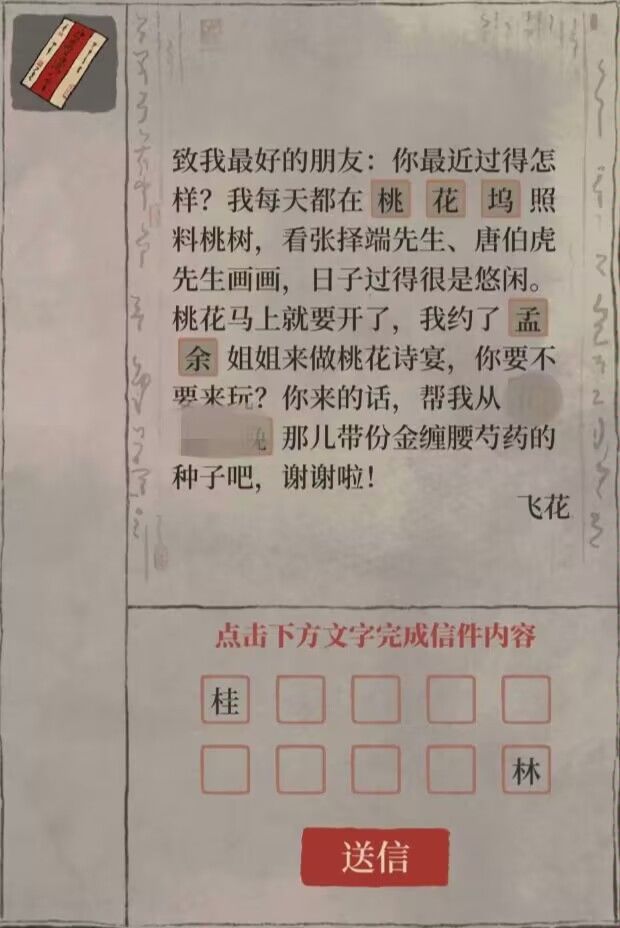 致我最好的朋友：你最近过得怎
样？我每天都在桃花坞照
料桃树，看张择端先生、唐伯虎
先生画画，日子过得很是悠闲。
桃花马上就要开了，我约了孟
余姐姐来做桃花诗宴，你要不
要来玩？你来的话，帮我从
那儿带份金缠腰芍药的
种子吧，谢谢啦！
飞花
点击下方文字完成信件内容
桂
林
送信